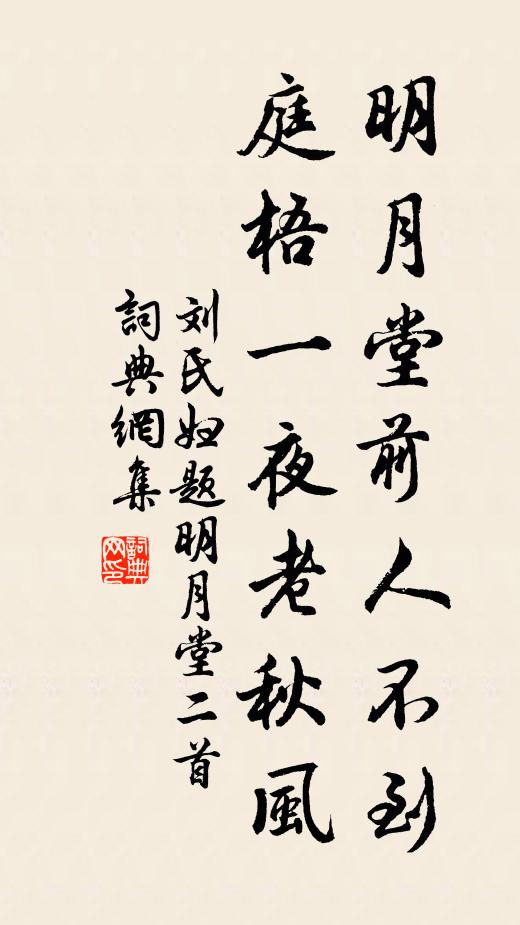 明月堂前人不到
庭梧一夜老秋风
刘氏妇题明月堂二首
詞典網集
詞典网印